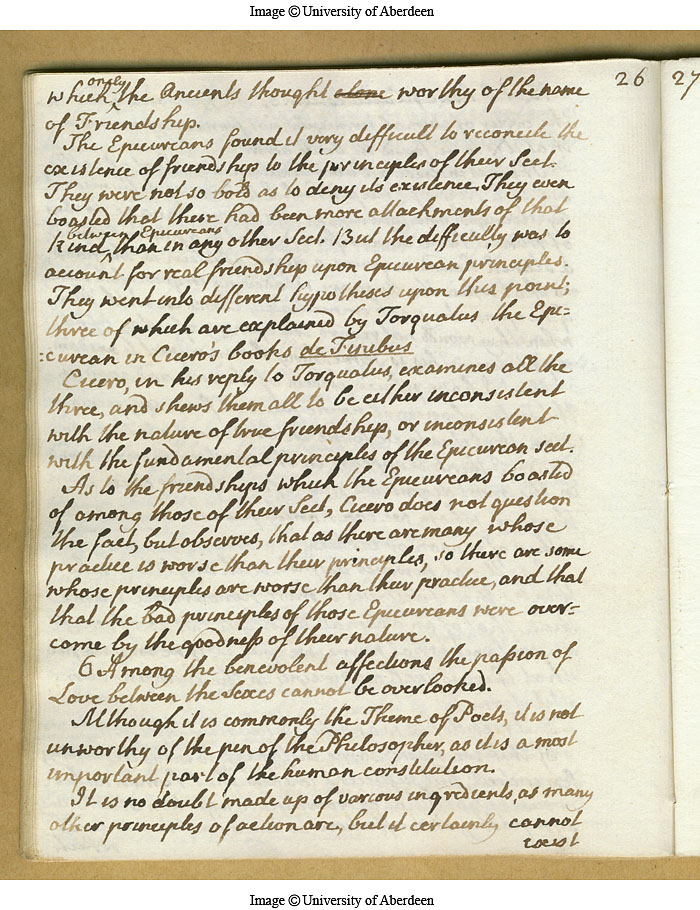 Image © University of Aberdeen
26
27
only
which the Ancients thought alone worthy of the name
of Friendship.
The Epicureans found it very difficult to reconcile the
existence of friendship to the principles of their Sect.
They were not so bold as to deny its existence. They even
boasted that there had been more attachments of that
between Epicureans
kind, than in any other Sect. But the difficulty was to
account for real friendship upon Epicurean principles.
They went into different hypotheses upon this point;
three of which are explained by Torquatus the Epi=
=curean in Cicero's books de Finibus
Cicero, in his reply to Torquatus, examines all the
three, and shews them all to be either inconsistent
with the nature of true friendship, or inconsistent
with the fundamental principles of the Epicurean sect.
As to the friendships which the Epicureans boasted
of among those of their Sect, Cicero does not question
the fact, but observes, that as there are many whose
practice is worse than their principles, so there are some
whose principles are worse than their practice, and that
that the bad principles of those Epicureans were over=
come by the goodness of their nature.
6 Among the benevolent affections the passion of
Love between the Sexes cannot be overlooked.
Although it is commonly the Theme of Poets, it is not
unworthy of the pen of the Philosopher, as it is a most
important part of the human constitution.
It is no doubt made up of various ingredients, as many
other principles of action are, but it certainly cannot
exist
Image © University of Aberdeen